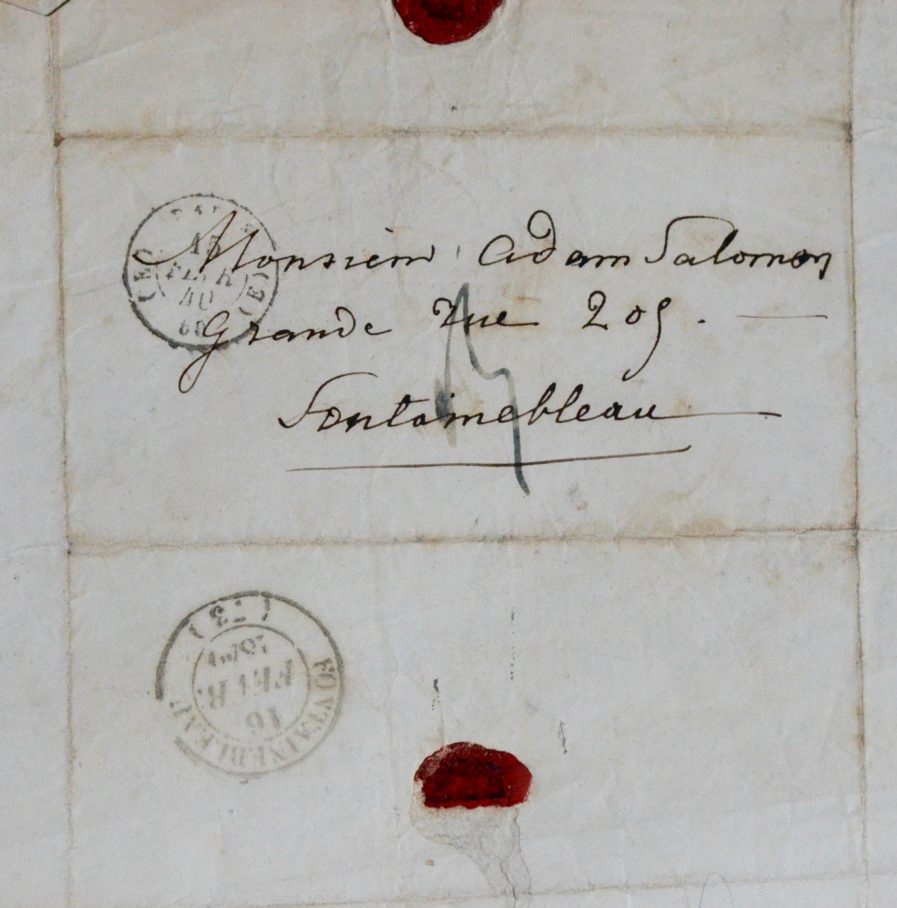 Monsieur Adam Salomon
Grande rue 205.
Fontainebleau
FEVR
40
(E)
60
(73)
FEVR.
16
FONTAINEBLEAU